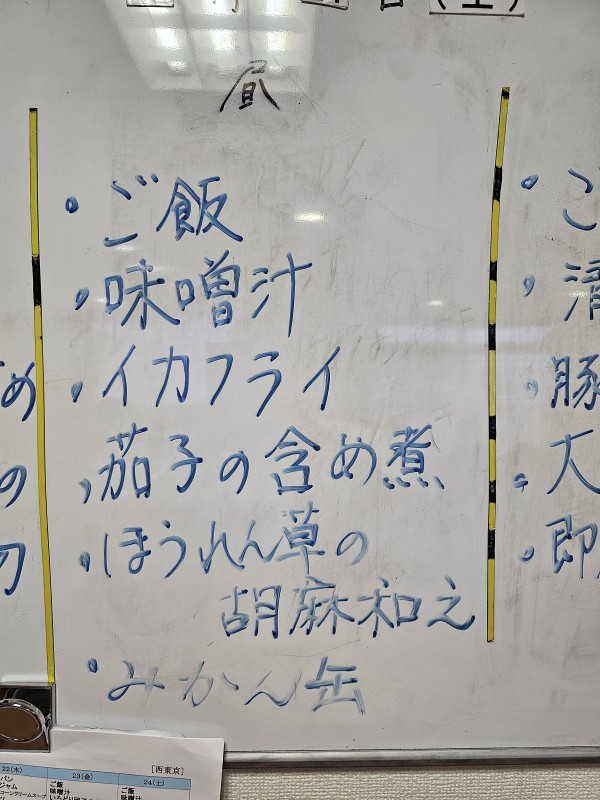 (土)
昼
・ご飯
・味噌汁
・イカフライ
・茄子の含め煮
・ほうれん草の
胡麻和え
・みかん缶
め
の
・
・
・豚
・大
・即
[西東京]
22(木) 23(金) 24(土)
パン ご飯 ご飯
ジャム 味噌汁 味噌汁
コーンクリームスープ